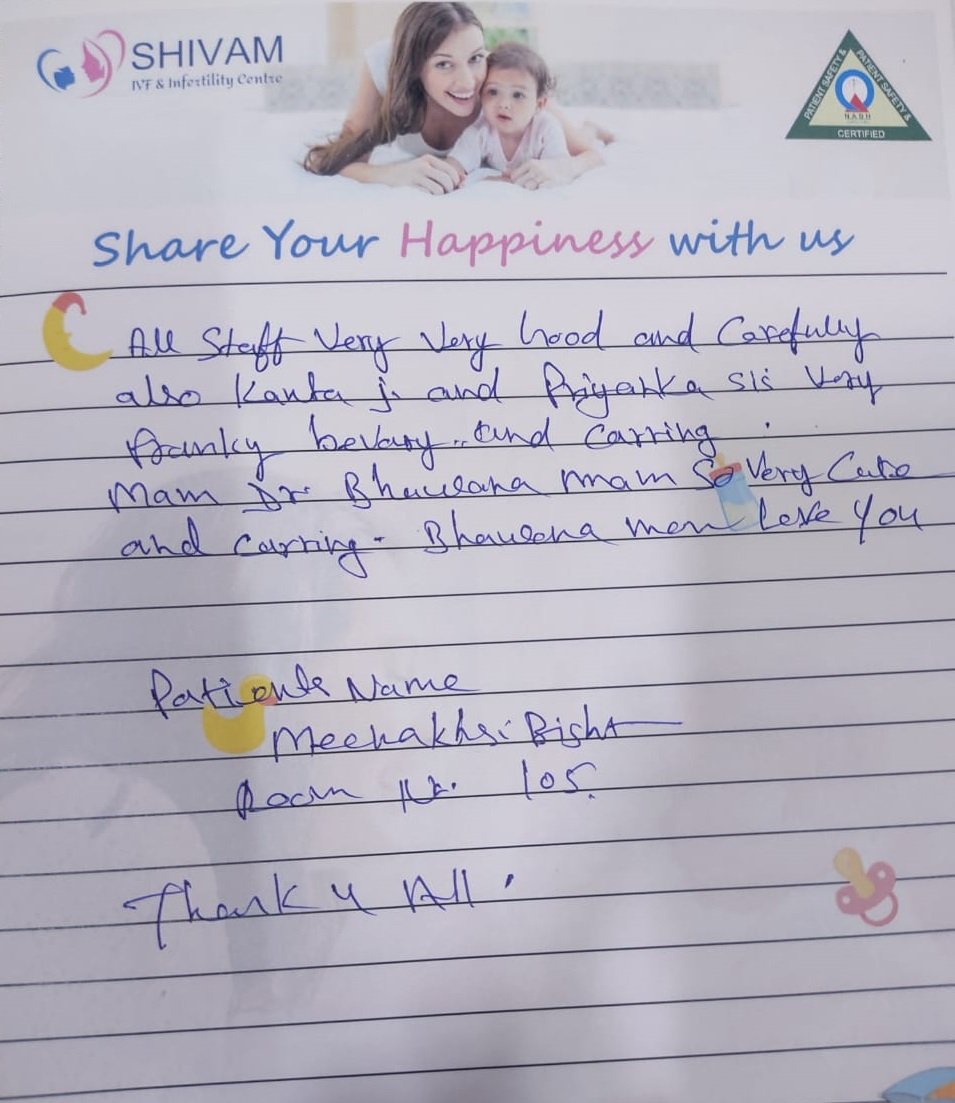 SHIVAM
IVF & Infertility Centre
PATIENT SAFETY &
PATIENT SAFETY &
N.A.B.H
CERTIFIED
Share Your Happiness with us
All Staff Very Very Good and Carefully
also Kanta ji and Priyanka sis Very
franky bevary.. and Carring
Mam Dr. Bhawana mam So Very Cute
and Carring. Bhawana mam love You
Patients Name
Meenakhsi Bisht
Room No. 105.
Thank u All